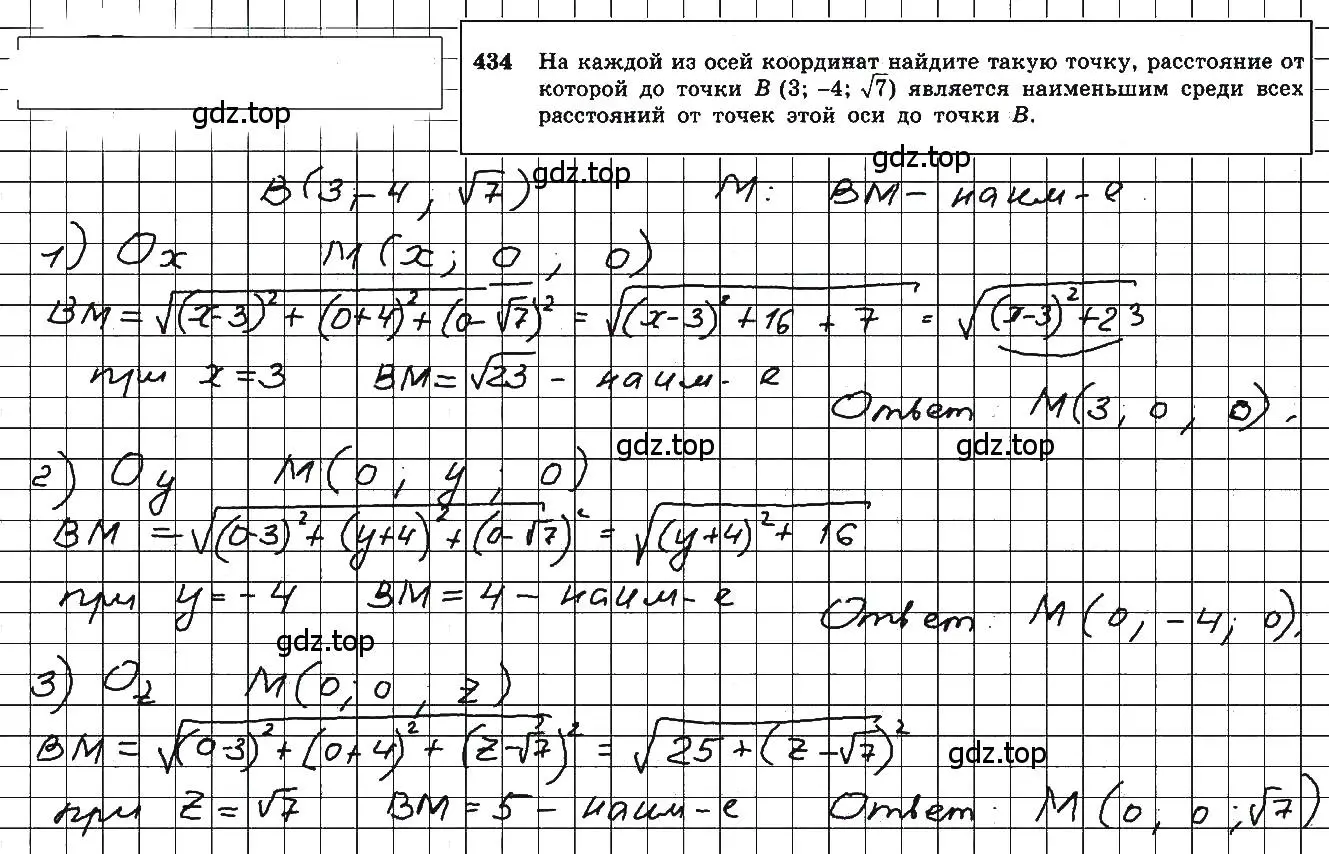 434 На каждой из осей координат найдите такую точку, расстояние от
которой до точки B (3; –4; √7) является наименьшим среди всех
расстояний от точек этой оси до точки B.
gdz.top
gdz.top
gdz.top
B(3,–4, √7) M: BM – наим-е
1) Ox M(x; 0; 0)
BM = √((x-3)² + (0+4)² + (0-√7)²) = √((x-3)² + 16 + 7) = √((x-3)² + 23)
при x = 3 BM = √23 – наим-е
Ответ M(3, 0, 0).
gdz.top
gdz.top
2) Oy M(0; y; 0)
BM = √((0-3)² + (y+4)² + (0-√7)²) = √((y+4)² + 16)
при y = –4 BM = 4 – наим-е
Ответ: M(0, –4; 0).
gdz.top
3) Oz M(0; 0, z)
BM = √((0-3)² + (0+4)² + (z-√7)²) = √(25 + (z-√7)²)
gdz.top
при z = √7 BM = 5 – наим-е Ответ: M(0; 0; √7)